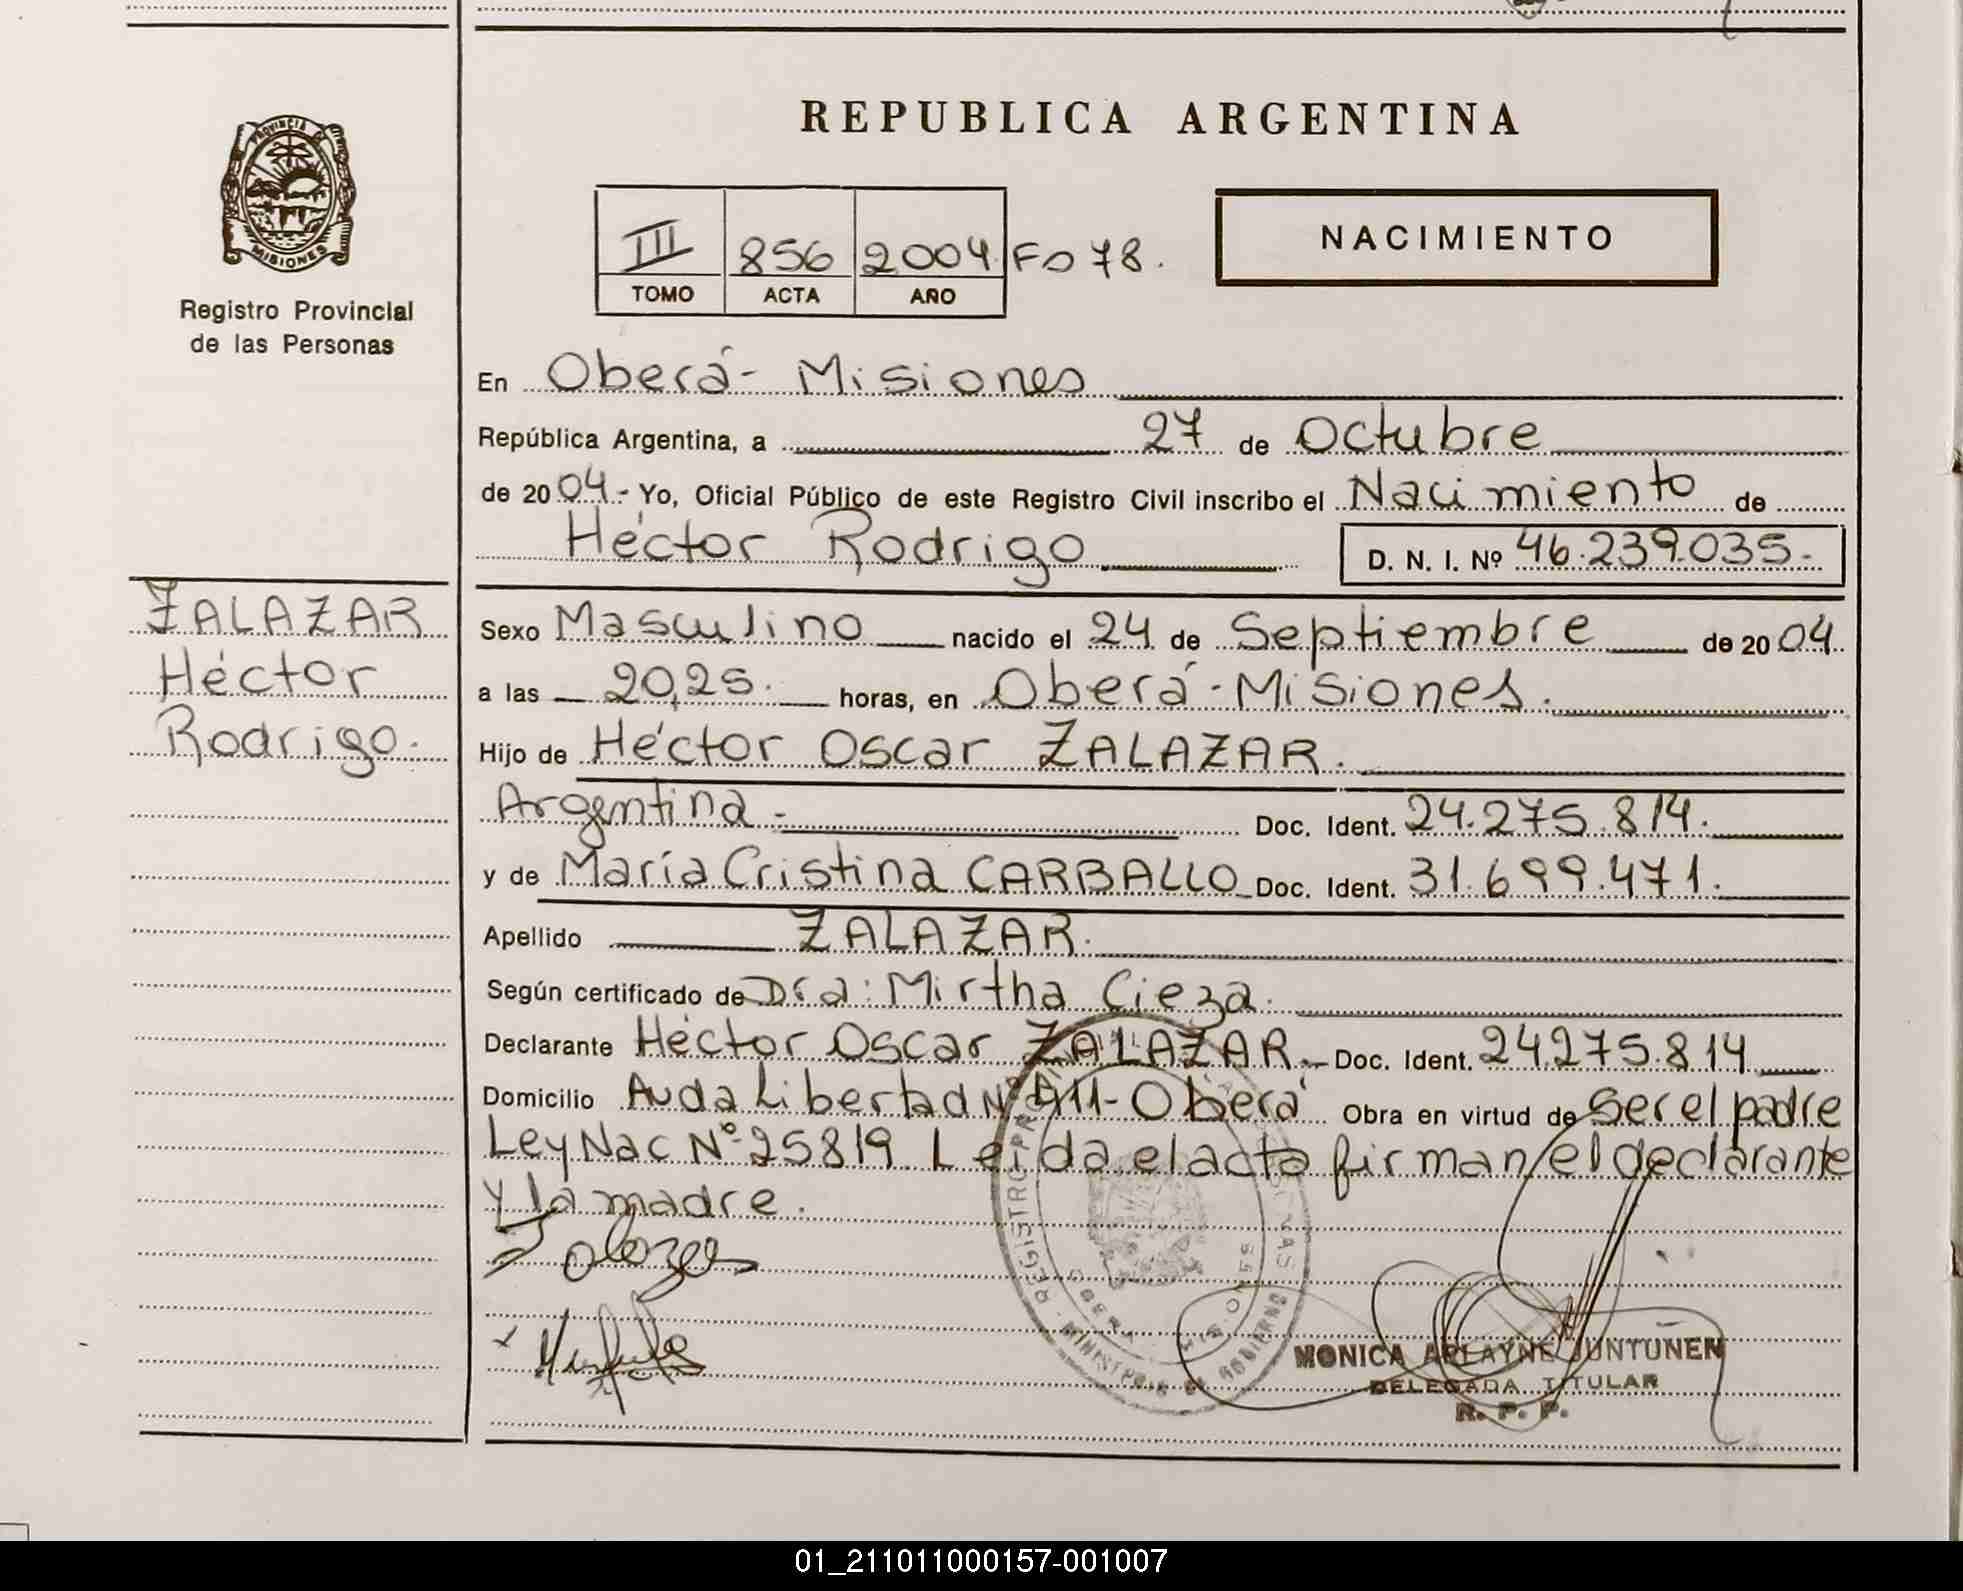 PROVINCIA DE
MISIONES
Registro Provincial
de las Personas
REPUBLICA ARGENTINA
III 856 2004 Fo 78.
TOMO ACTA AÑO
NACIMIENTO
En Oberá - Misiones
República Argentina, a 27 de Octubre
de 2004.- Yo, Oficial Público de este Registro Civil inscribo el Nacimiento de
Héctor Rodrigo D. N. I. Nº 46.239.035.-
ZALAZAR
Héctor
Rodrigo.
Sexo Masculino nacido el 24 de Septiembre de 2004.
a las 20,25. horas, en Oberá - Misiones.
Hijo de Héctor Oscar ZALAZAR.
Argentina.- Doc. Ident. 24.275.814.
y de María Cristina CARBALLO Doc. Ident. 31.699.471.
Apellido ZALAZAR.
Según certificado de Dra: Mirtha Cieza.
Declarante Héctor Oscar ZALAZAR.- Doc. Ident. 24.275.814
Domicilio Avda Libertad Nº 411 - Oberá Obra en virtud de Ser el padre
Ley Nac Nº 25819. Leída el acta firman el declarante
y la madre.
REGISTRO MINISTERIO DE GOBIERNO
MONICA ARLAYNE JUNTUNEN
DELEGADA TITULAR
R. P. P.
01_211011000157-001007